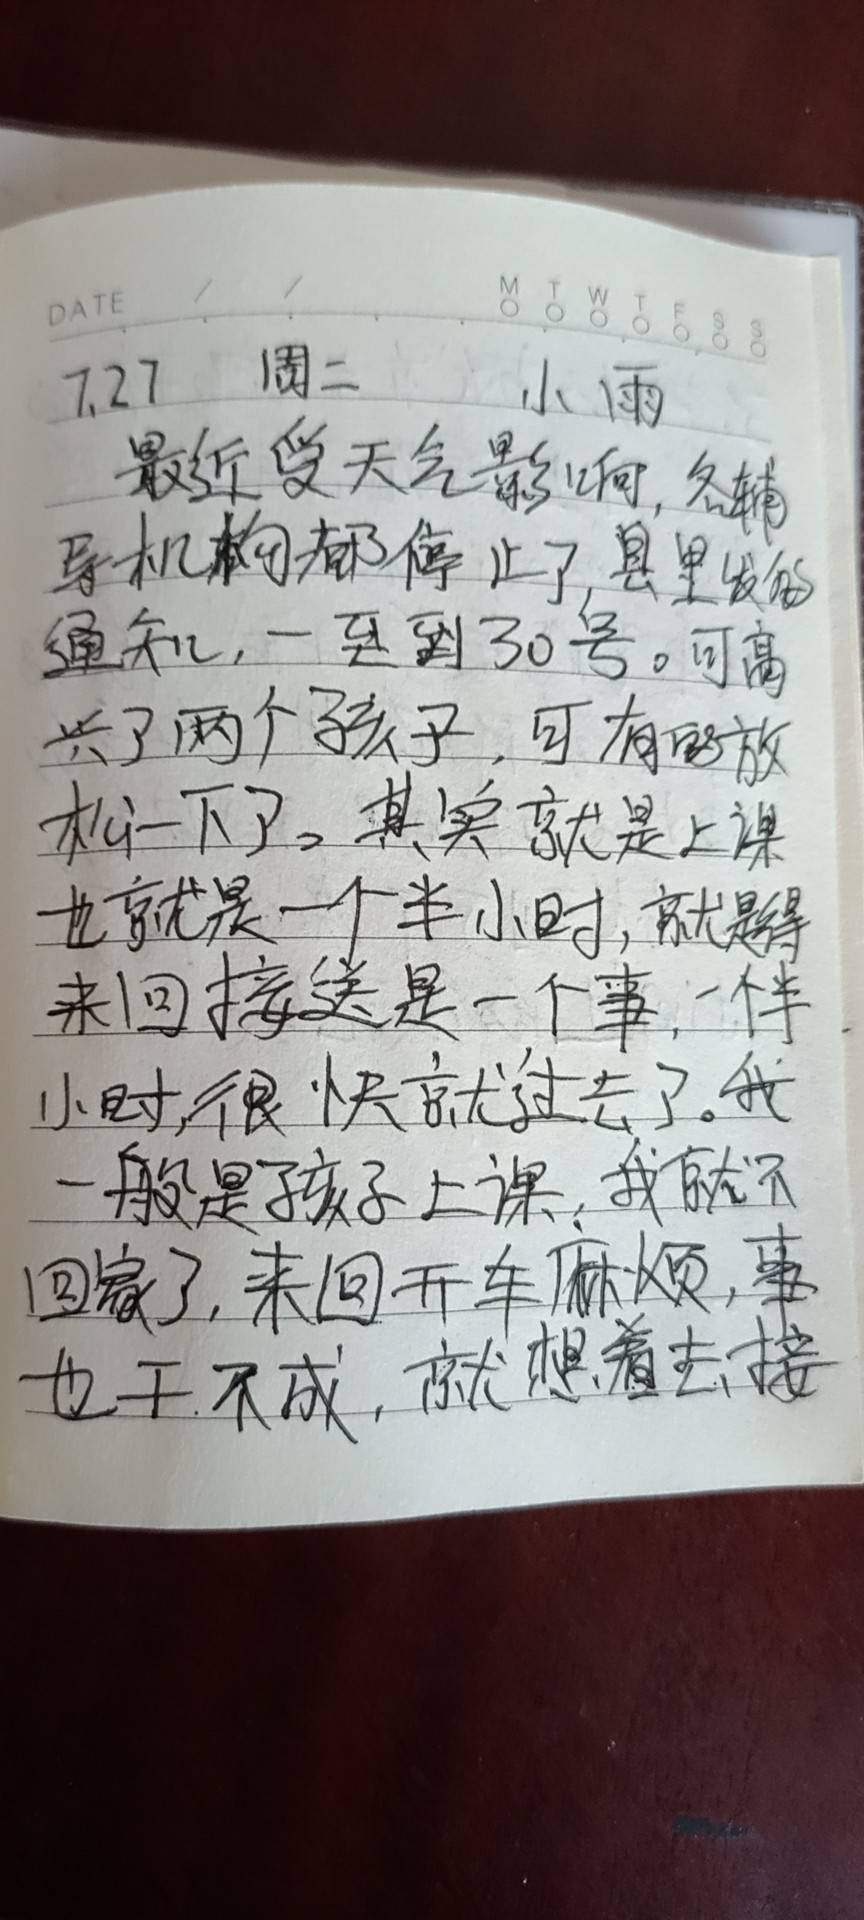 DATE / /
M T W T F S S
7.27 周二 小雨
最近受天气影响,各辅
导机构都停止了,县里发的
通知,一直到30号。可高
兴了两个孩子,可有的放
松一下了。其实就是上课
也就是一个半小时,就是得
来回接送是一个事,一个半
小时,很快就过去了。我
一般是孩子上课,我就不
回家了,来回开车麻烦,事
也干不成,就想着去接